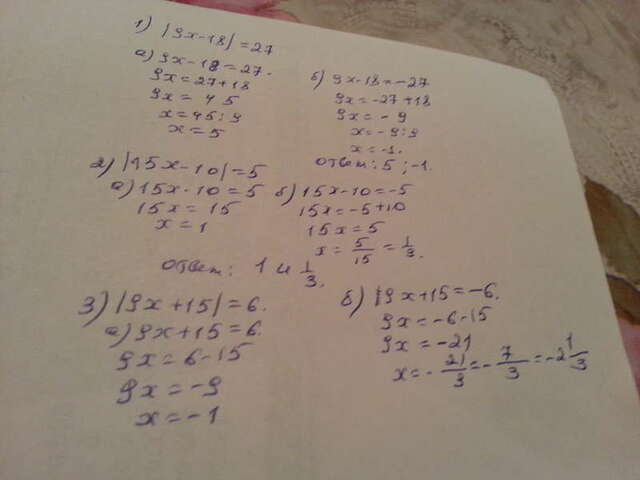 1) |9x-18| = 27
а) 9x-18 = 27.
9x = 27+18
9x = 45
x = 45:9
x = 5
б) 9x-18 = -27
9x = -27+18
9x = -9
x = -9:9
x = -1.
Ответ: 5 ; -1.
2) |15x-10| = 5
а) 15x-10 = 5
15x = 15
x = 1
б) 15x-10 = -5
15x = -5+10
15x = 5
x = 5/15 = 1/3.
Ответ: 1 и 1/3.
3) |9x+15| = 6.
а) 9x+15 = 6.
9x = 6-15
9x = -9
x = -1
б) 9x+15 = -6.
9x = -6-15
9x = -21
x = -21/9 = -7/3 = -2 1/3